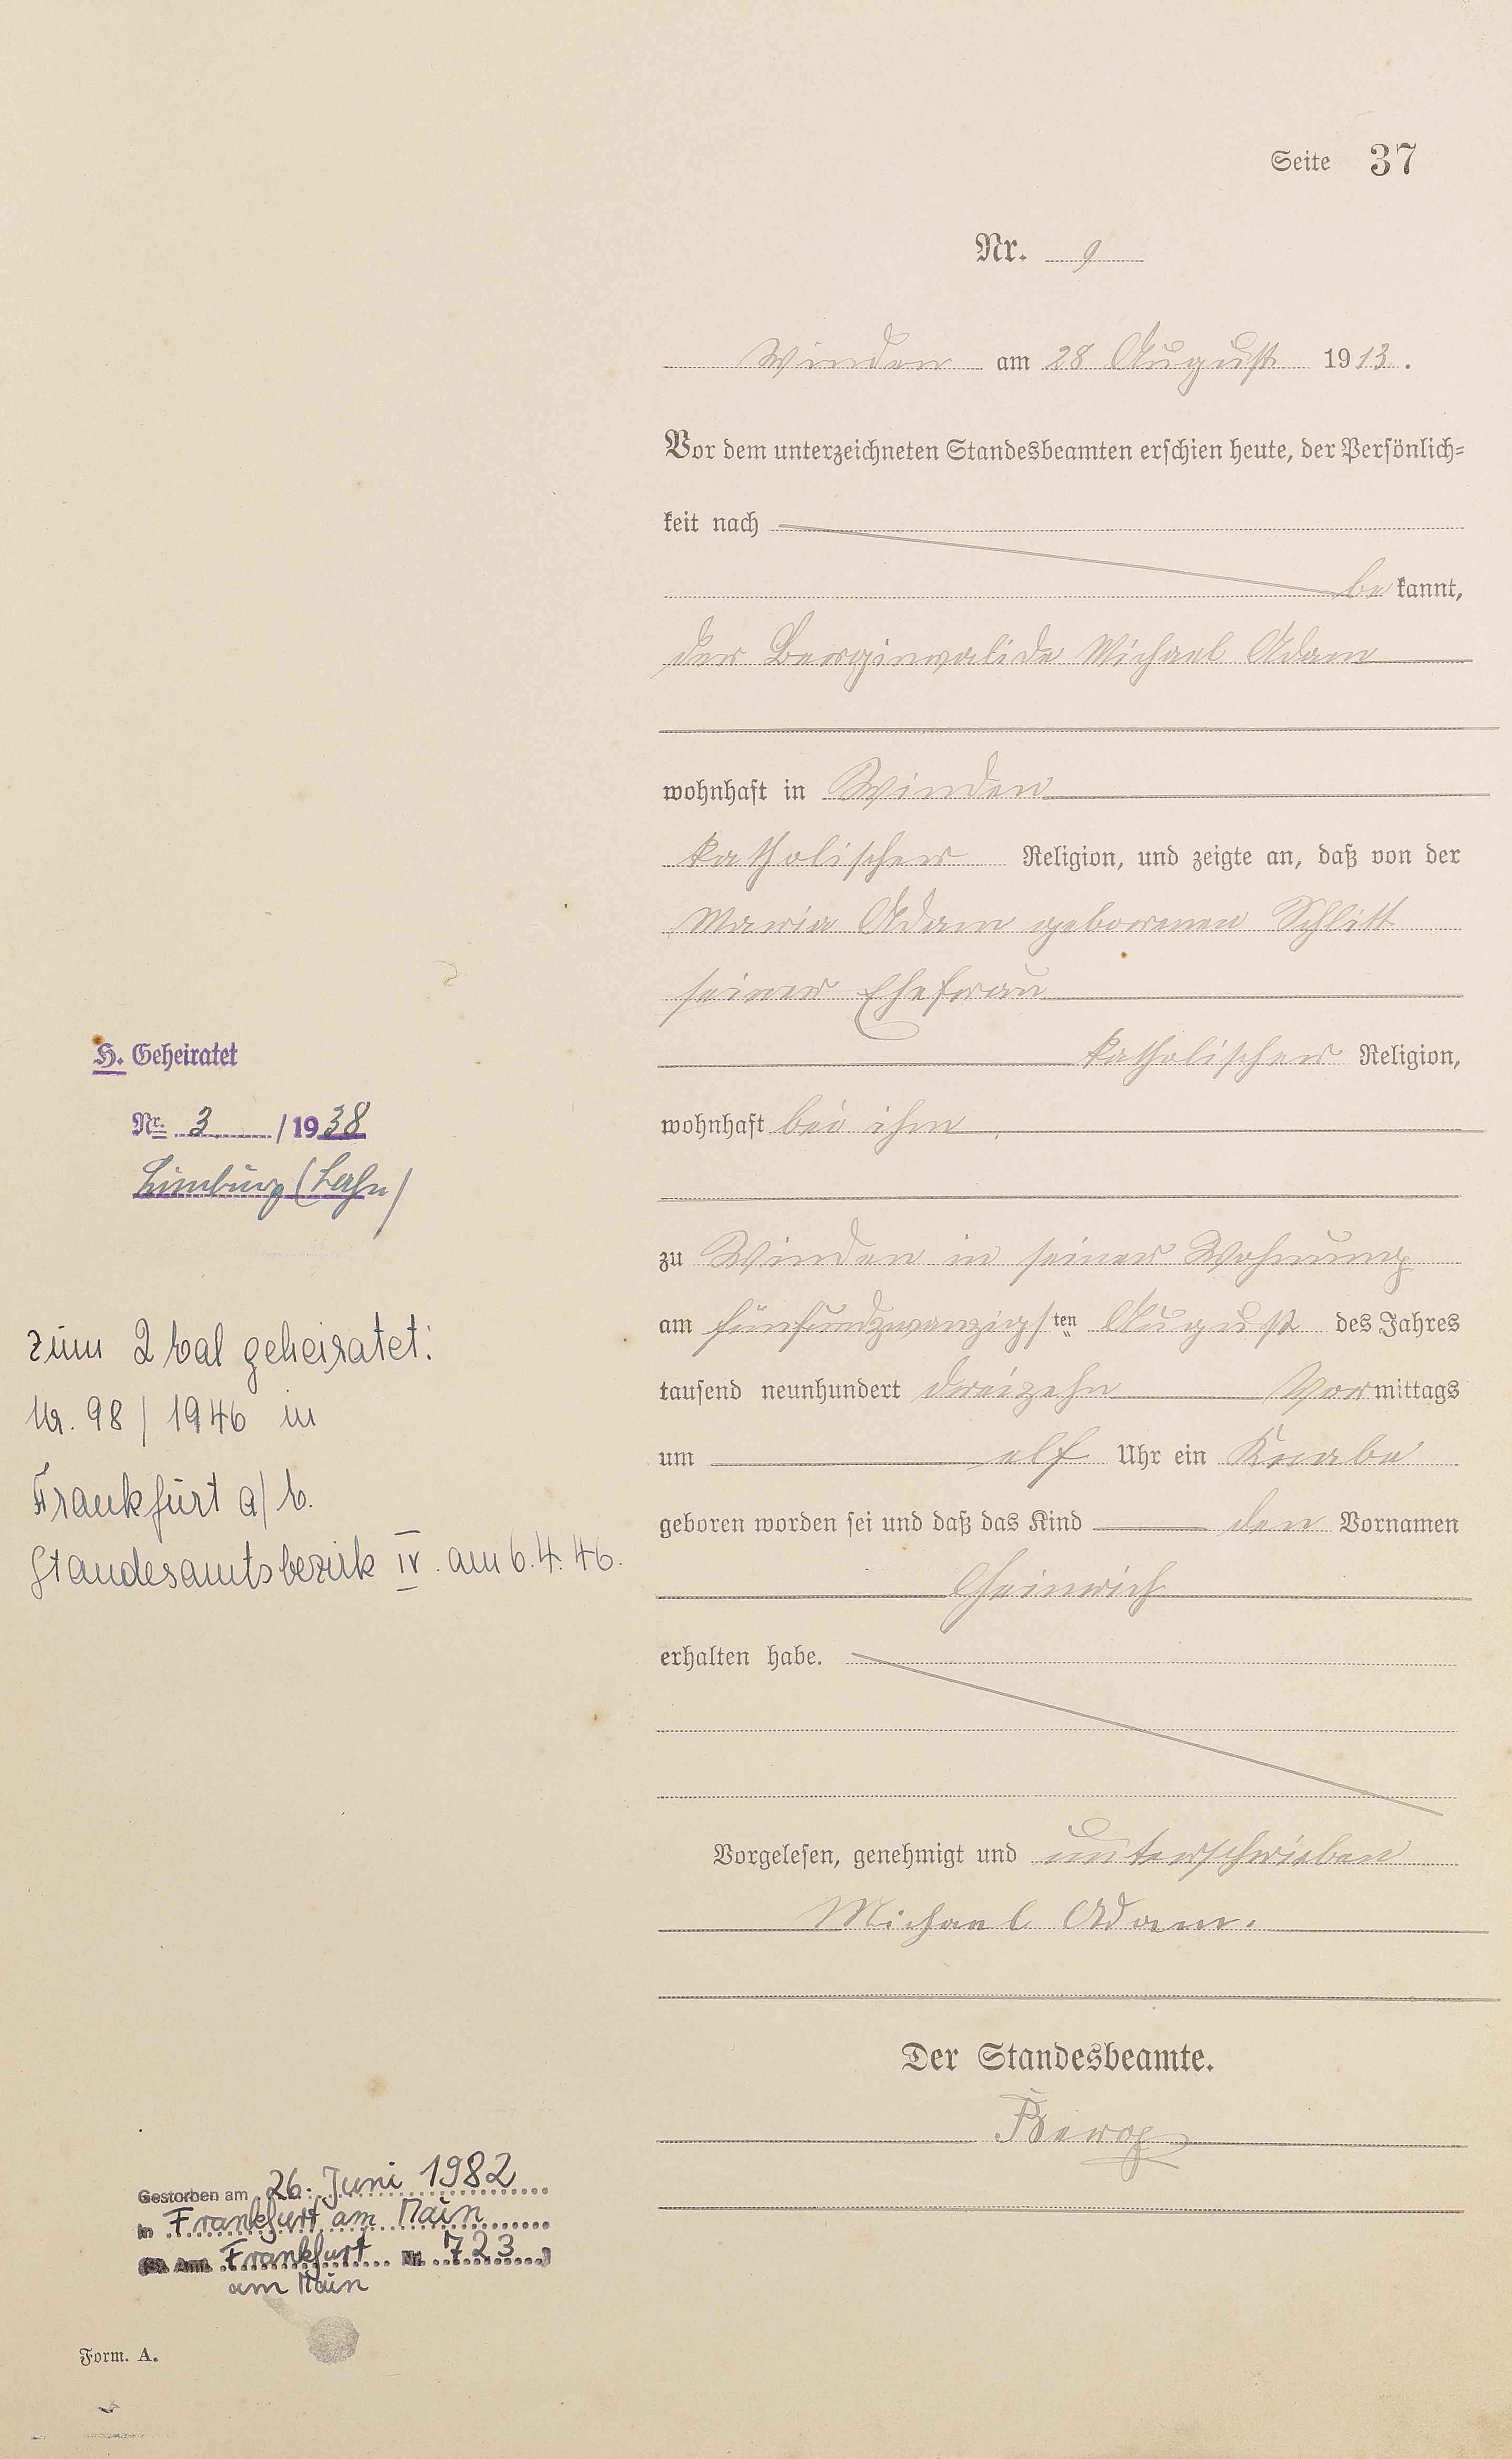 Seite 37
Nr. 9
Winden am 28 August 1913.
Vor dem unterzeichneten Standesbeamten erschien heute, der Persönlich-
keit nach
bekannt,
der Berginvalide Michael Adam
wohnhaft in Winden
katholischer Religion, und zeigte an, daß von der
Maria Adam geborenen Schlitt
seiner Ehefrau
katholischer Religion,
wohnhaft bei ihm
zu Winden in seiner Wohnung
am fünfundzwanzigsten August des Jahres
tausend neunhundert dreizehn Vormittags
um elf Uhr ein Knabe
geboren worden sei und daß das Kind den Vornamen
Heinrich
erhalten habe.
Vorgelesen, genehmigt und unterschrieben
Michael Adam.
Der Standesbeamte.
H. Geheiratet
Nr. 3 / 1938
Limburg (Lahn)
zum 2 Mal geheiratet:
Nr. 98 / 1946 in
Frankfurt a/M.
Standesamtsbezirk IV. am 6.4.46.
Gestorben am 26. Juni 1982
in Frankfurt am Main
St. Amt. Frankfurt Nr. 723
am Main
Form. A.